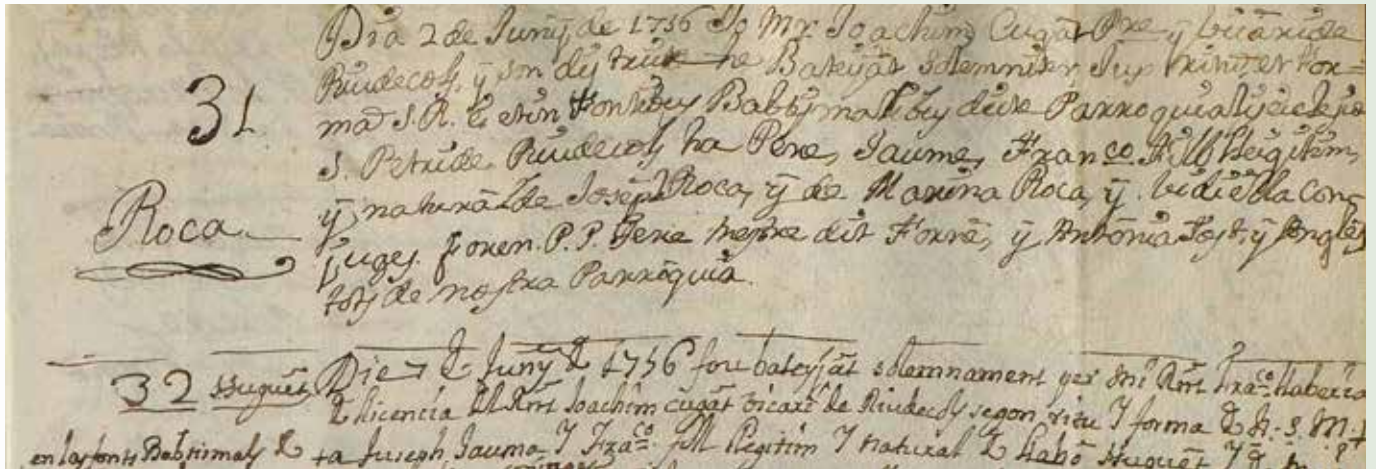 31
Roca
Dia 2 de Juny de 1756 Jo Mr Joachim Cugat Pre y vicari de
Riudecols, y son districte he Batejat solemniter Jux ritum, et for=
mã S. R. E. et in Fontibus Babtismalibus dicte Parroquialis Eclesie
S. Petri de Riudecols ha Pere, Jaume, Franco fill llegitim,
y natural de Joseph Roca, y de Marina Roca, y Vidiella con=
juges. foren P. P. Pere mestre dit Forrè, y Antònia Tost, y Anglès
tots de nostra Parròquia.
32 Huguèt Die 7 de Juny de 1756 fou batejàt solemnament per mi Rnt Franco
de llicencia del Rnt Joachim cugàt vicari de Riudecols segon ritu y forma de N. S. M.
en las fonts Babtismals de ta Juseph Jauma y Franco fill llegitim y natural de Huguèt y